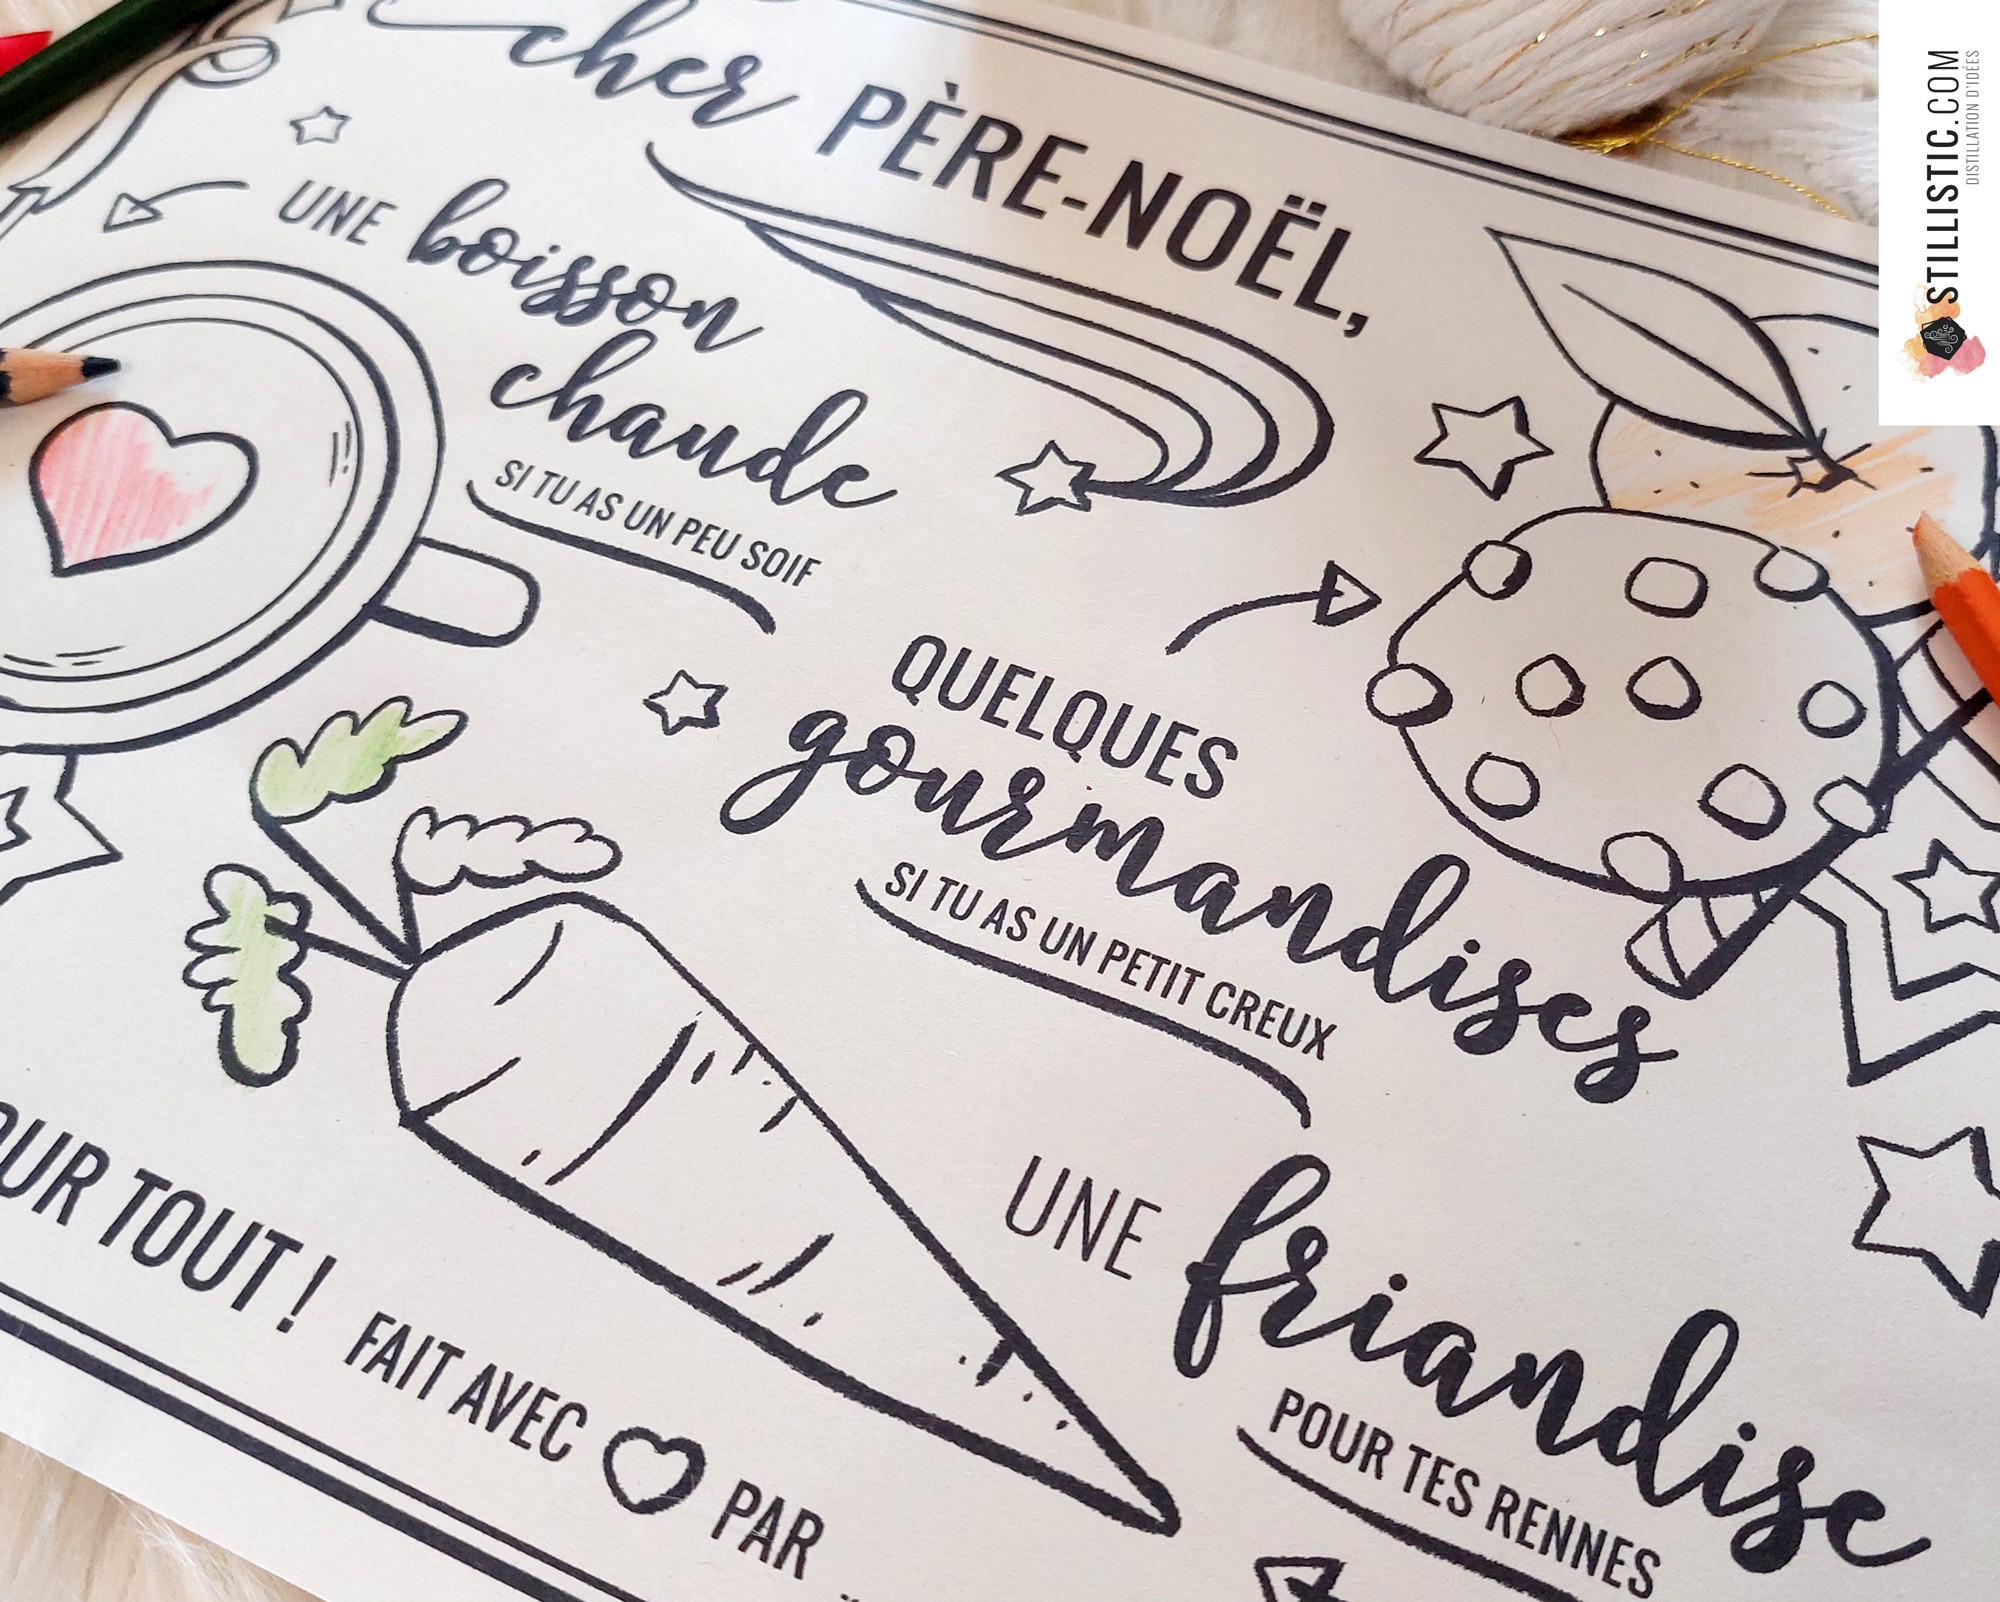 cher PÈRE-NOËL,
UNE boisson
chaude
SI TU AS UN PEU SOIF
QUELQUES
gourmandises
SI TU AS UN PETIT CREUX
UNE friandise
POUR TES RENNES
TOUT !
FAIT AVEC PAR
STILLISTIC.COM
DISTILLATION D'IDÉES